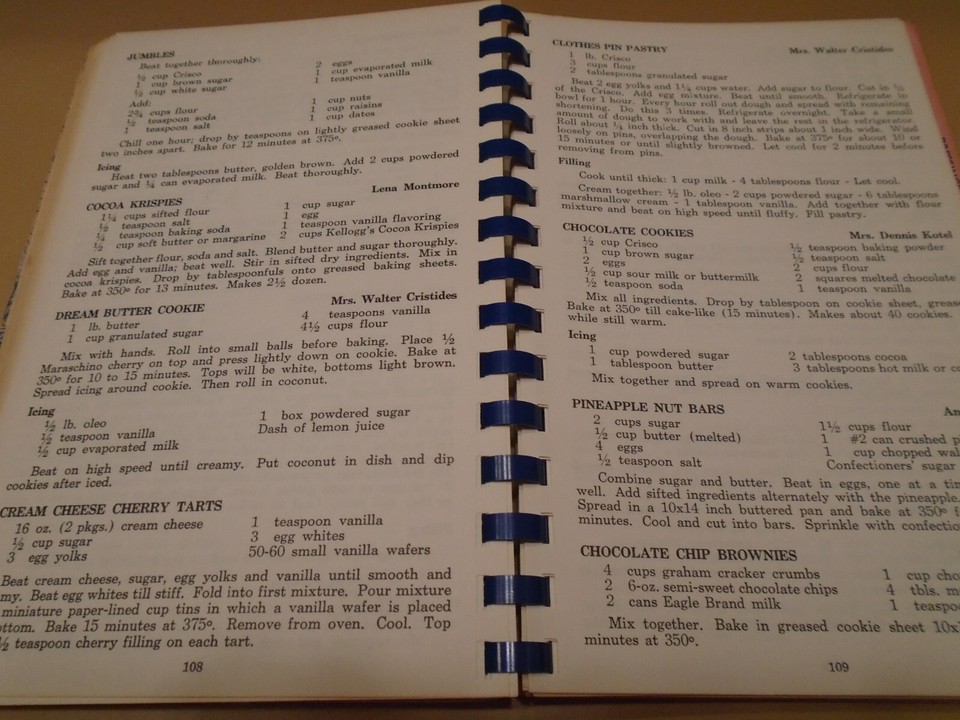 JUMBLES
Beat together thoroughly:
½ cup Crisco
1 cup brown sugar
½ cup white sugar
2 eggs
1 cup evaporated milk
1 teaspoon vanilla
Add:
2¾ cups flour
½ teaspoon soda
1 teaspoon salt
1 cup nuts
1 cup raisins
1 cup dates
Chill one hour; drop by teaspoons on lightly greased cookie sheet
two inches apart. Bake for 12 minutes at 375º.
Icing
Heat two tablespoons butter, golden brown. Add 2 cups powdered
sugar and ¼ can evaporated milk. Beat thoroughly.
Lena Montmore
COCOA KRISPIES
1¼ cups sifted flour
½ teaspoon salt
teaspoon baking soda
½ cup soft butter or margarine
1 cup sugar
1 egg
1 teaspoon vanilla flavoring
2 cups Kellogg's Cocoa Krispies
Sift together flour, soda and salt. Blend butter and sugar thoroughly.
Add egg and vanilla; beat well. Stir in sifted dry ingredients. Mix in
cocoa krispies. Drop by tablespoonfuls onto greased baking sheets.
Bake at 350º for 13 minutes. Makes 2½ dozen.
Mrs. Walter Cristides
DREAM BUTTER COOKIE
1 lb. butter
1 cup granulated sugar
4 teaspoons vanilla
4½ cups flour
Mix with hands. Roll into small balls before baking. Place ½
Maraschino cherry on top and press lightly down on cookie. Bake at
350º for 10 to 15 minutes. Tops will be white, bottoms light brown.
Spread icing around cookie. Then roll in coconut.
Icing
½ lb. oleo
½ teaspoon vanilla
½ cup evaporated milk
1 box powdered sugar
Dash of lemon juice
Beat on high speed until creamy. Put coconut in dish and dip
cookies after iced.
CREAM CHEESE CHERRY TARTS
16 oz. (2 pkgs.) cream cheese
½ cup sugar
3 egg yolks
1 teaspoon vanilla
3 egg whites
50-60 small vanilla wafers
Beat cream cheese, sugar, egg yolks and vanilla until smooth and
my. Beat egg whites till stiff. Fold into first mixture. Pour mixture
miniature paper-lined cup tins in which a vanilla wafer is placed
ttom. Bake 15 minutes at 375º. Remove from oven. Cool. Top
½ teaspoon cherry filling on each tart.
108
CLOTHES PIN PASTRY
Mrs. Walter Cristides
1 lb. Crisco
3 cups flour
2 tablespoons granulated sugar
Beat 2 egg yolks and 1¼ cups water. Add sugar to flour. Cut in
of the Crisco. Add egg mixture. Beat until smooth. Refrigerate in
bowl for 1 hour. Every hour roll out dough and spread with remaining
shortening. Do this 3 times. Refrigerate overnight. Take a small
amount of dough to work with and leave the rest in the refrigerator.
Roll about ¼ inch thick. Cut in 8 inch strips about 1 inch wide. Wind
loosely on pins, overlapping the dough. Bake at 375º for about 10 or
15 minutes or until slightly browned. Let cool for 2 minutes before
removing from pins.
Filling
Cook until thick: 1 cup milk - 4 tablespoons flour - Let cool.
Cream together: ½ lb. oleo - 2 cups powdered sugar - 6 tablespoons
marshmallow cream - 1 tablespoon vanilla. Add together with flour
mixture and beat on high speed until fluffy. Fill pastry.
Mrs. Dennis Kotel
CHOCOLATE COOKIES
½ cup Crisco
1 cup brown sugar
2 eggs
½ cup sour milk or buttermilk
½ teaspoon soda
½ teaspoon baking powder
½ teaspoon salt
2 cups flour
2 squares melted chocolate
1 teaspoon vanilla
Mix all ingredients. Drop by tablespoon on cookie sheet, greas
Bake at 350º till cake-like (15 minutes). Makes about 40 cookies.
while still warm.
Icing
1 cup powdered sugar
1 tablespoon butter
2 tablespoons cocoa
3 tablespoons hot milk or co
Mix together and spread on warm cookies.
PINEAPPLE NUT BARS
An
2 cups sugar
½ cup butter (melted)
4 eggs
½ teaspoon salt
1½ cups flour
1 #2 can crushed p
1 cup chopped wal
Confectioners' sugar
Combine sugar and butter. Beat in eggs, one at a tim
well. Add sifted ingredients alternately with the pineapple.
Spread in a 10x14 inch buttered pan and bake at 350º f
minutes. Cool and cut into bars. Sprinkle with confectio
CHOCOLATE CHIP BROWNIES
4 cups graham cracker crumbs
2 6-oz. semi-sweet chocolate chips
2 cans Eagle Brand milk
1 cup cho
4 tbls. m
1 teaspo
Mix together. Bake in greased cookie sheet 10x
minutes at 350º.
109